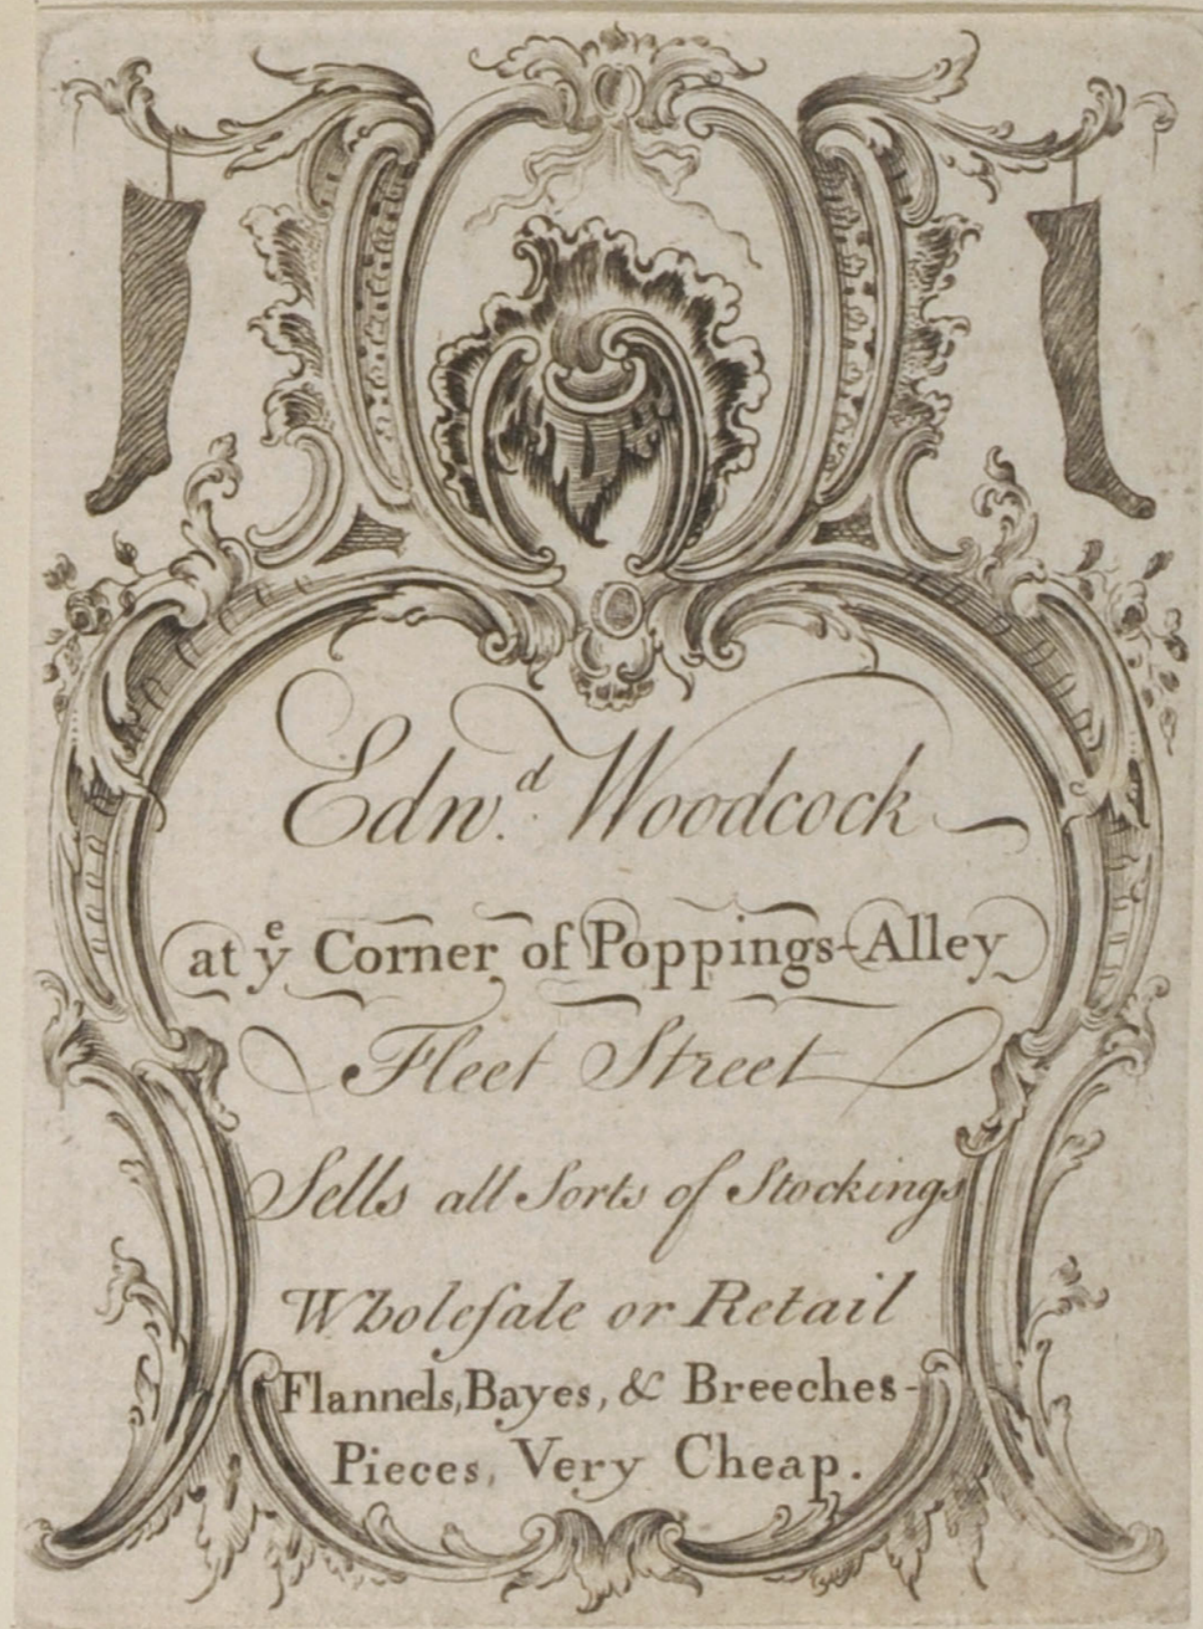 Edwᵈ. Woodcock
at yᵉ Corner of Poppings-Alley
Fleet Street
Sells all Sorts of Stockings
Wholeſale or Retail
Flannels, Bayes, & Breeches-
Pieces, Very Cheap.